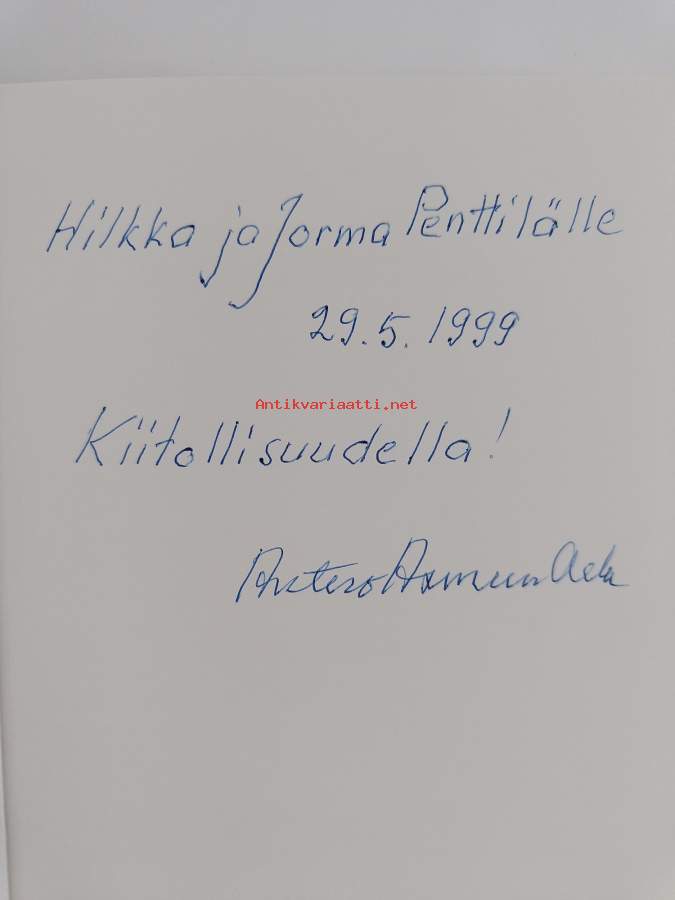 Hilkka ja Jorma Penttilälle
29.5.1999
Antikvariaatti.net
Kiitollisuudella!